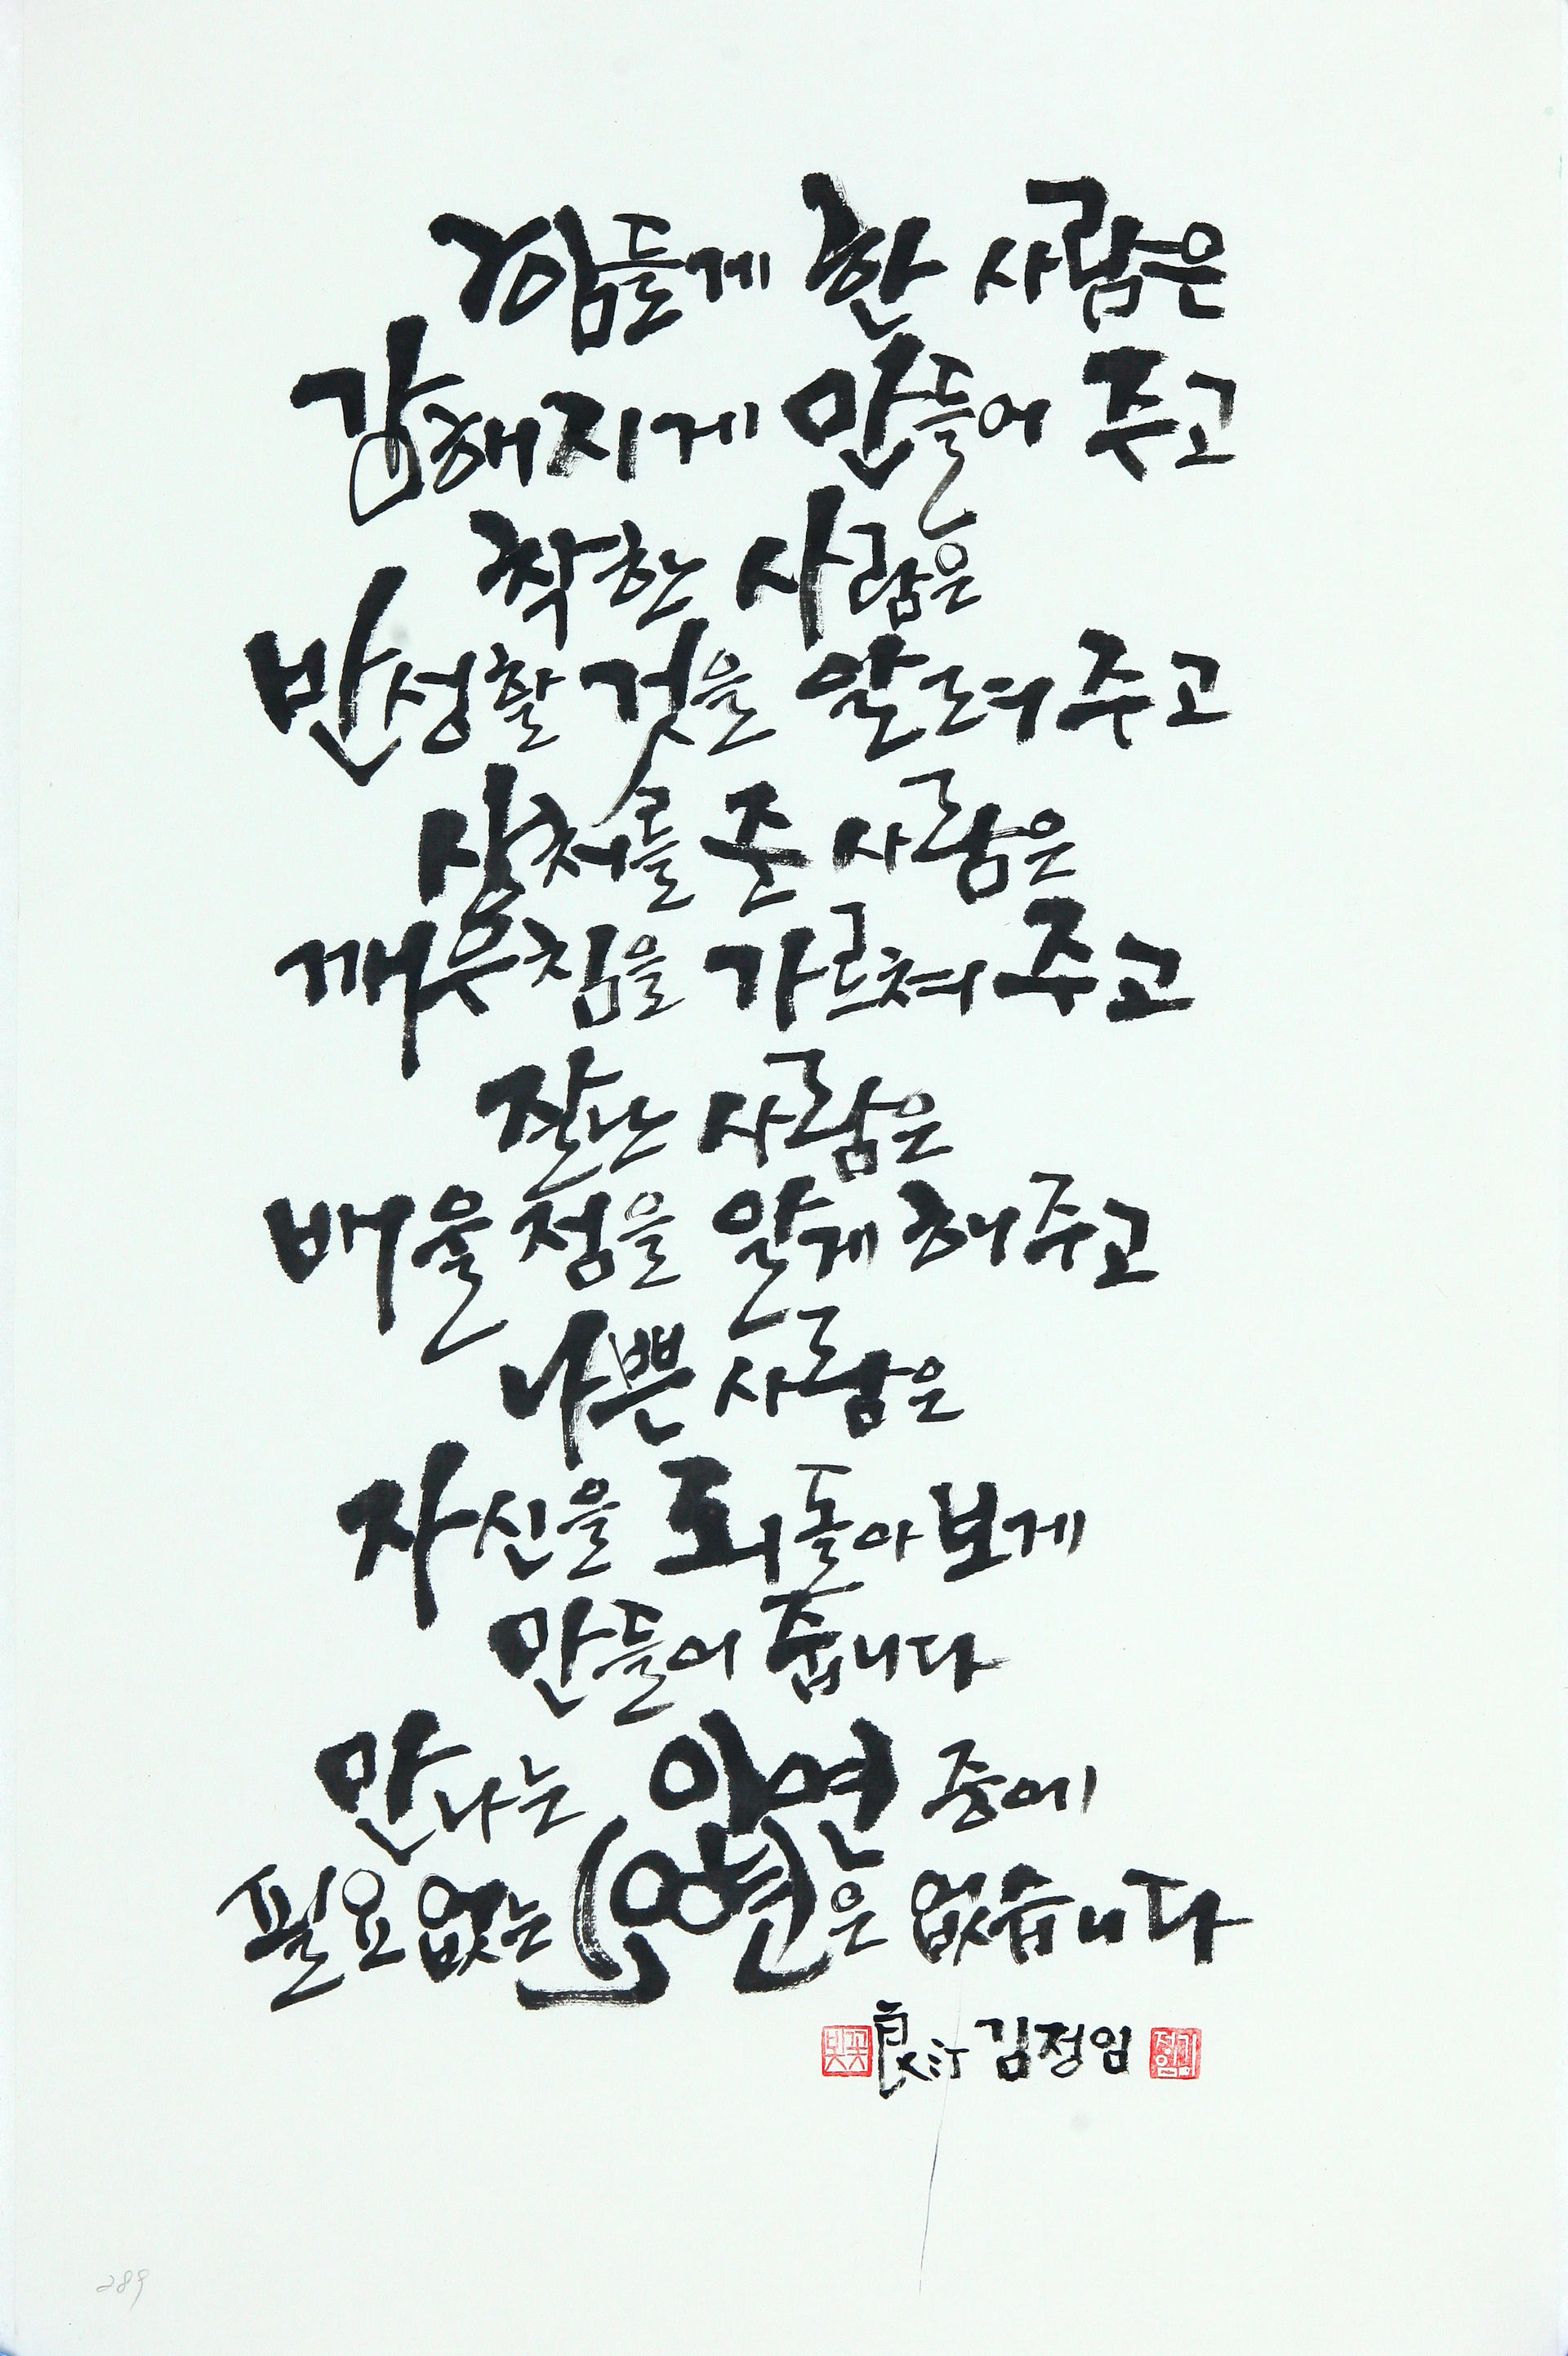 힘들게 한 사람은
강해지게 만들어 주고
착한 사람은
반성할 것을 알려 주고
상처를 준 사람은
깨우침을 가르쳐 주고
잘난 사람은
배울 점을 알게 해 주고
나쁜 사람은
자신을 되돌아 보게
만들어 줍니다
만나는 인연 중에
필요 없는 인연은 없습니다
빛꽃 良汀 김정임 김정임
289